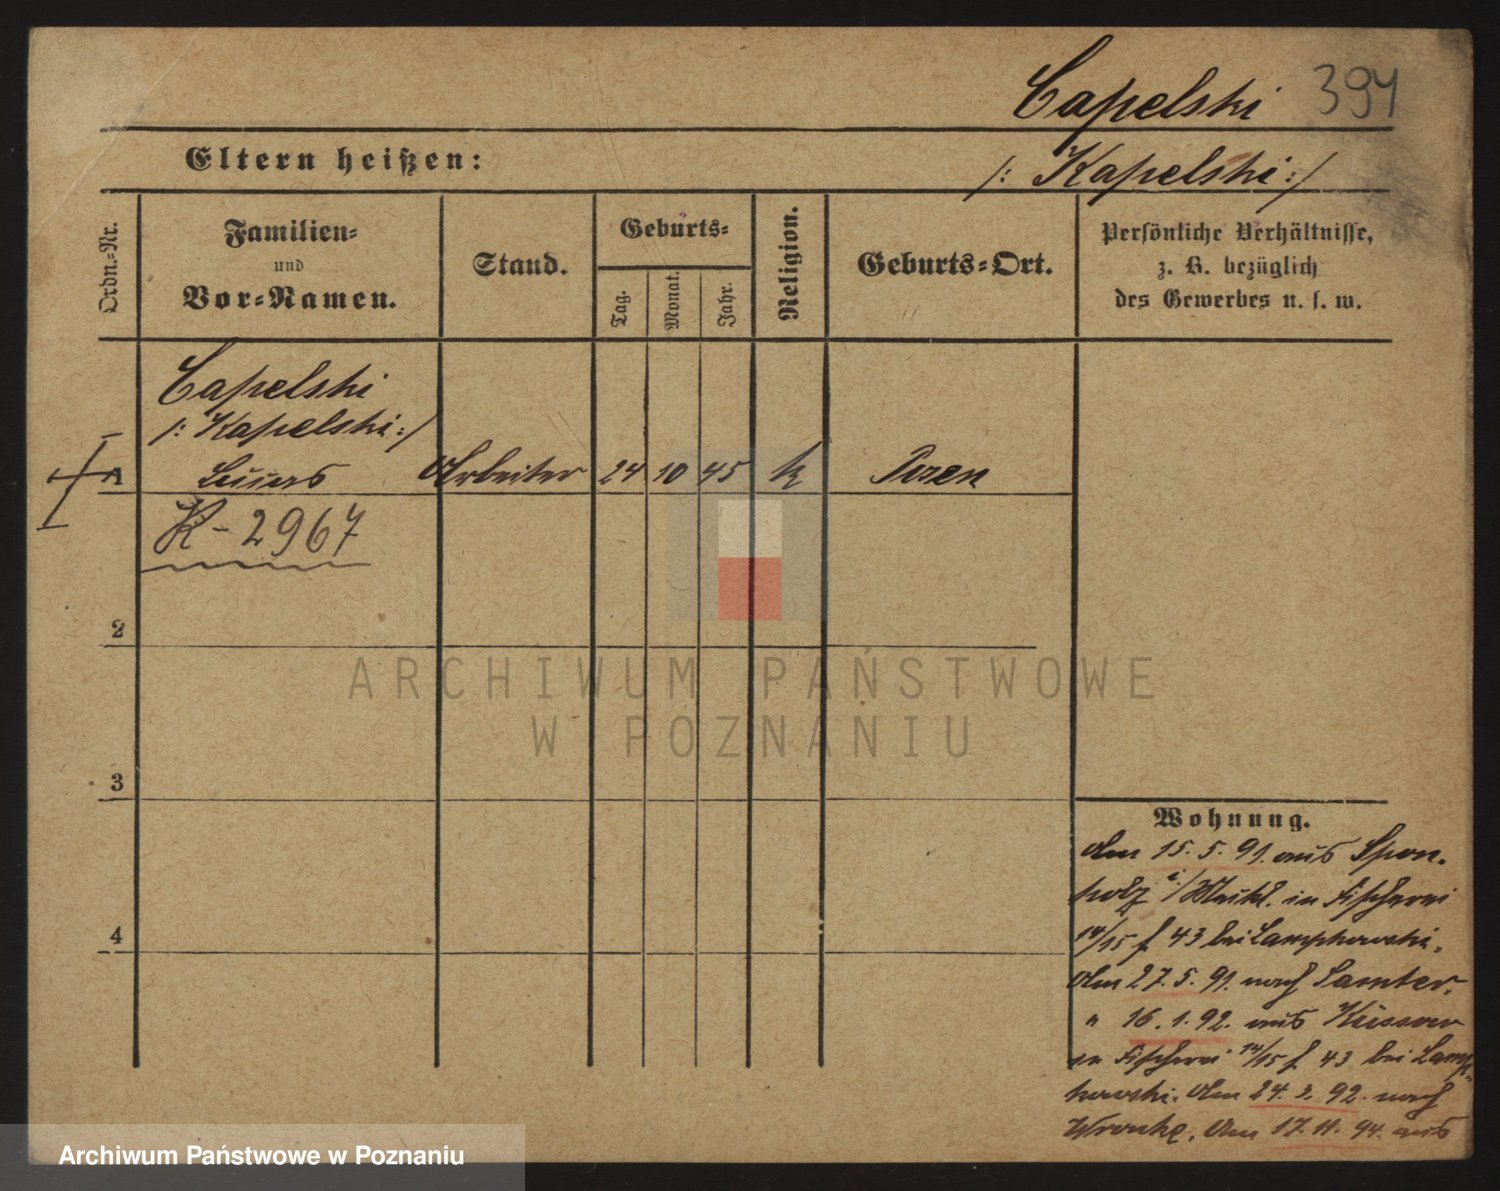 Capelski 394
Eltern heißen: /: Kapelski :/
Ordn.-Nr.
Familien-
und
Vor-Namen.
Stand.
Geburts-
Tag.
Monat.
Jahr.
Religion.
Geburts-Ort.
Persönliche Verhältnisse,
z. B. bezüglich
des Gewerbes u. s. w.
Capelski
/: Kapelski :/
1 Arbeiter 24 10 45 k Posen
K-2967
2
3
4
Wohnung.
Am 15. 5. 91. aus Spon-
holz i/Meckl. in Fischerei
14/15 f 43 bei Lampkowski.
Am 27. 5. 91. nach Samter.
" 16. 1. 92. aus Kussow
in Fischerei 14/15 f 43 bei Lamp-
kowski. Am 24. 3. 92. nach
Wronke. Am 17. 11. 94. aus
ARCHIWUM PAŃSTWOWE
W POZNANIU
Archiwum Państwowe w Poznaniu